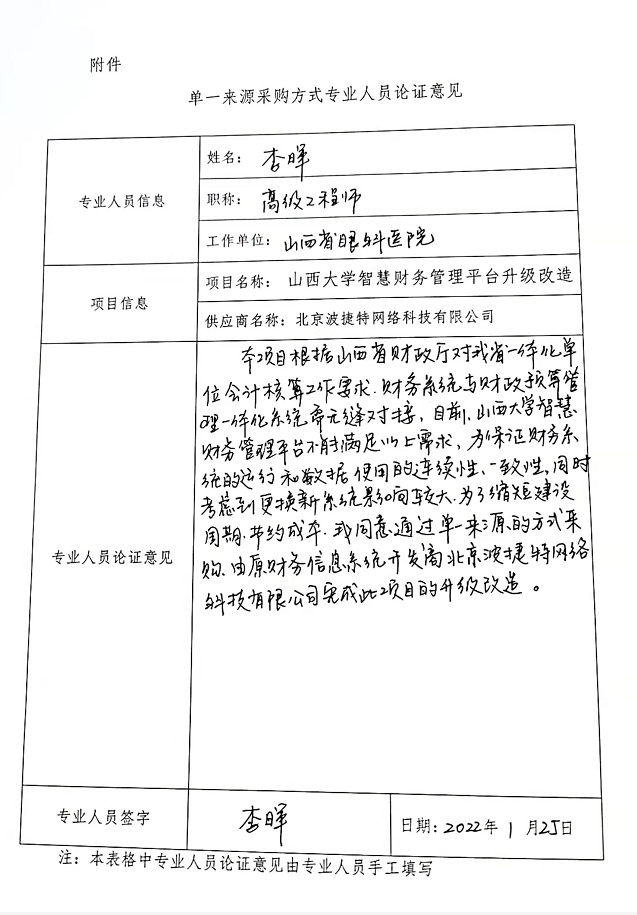 附件
单一来源采购方式专业人员论证意见
专业人员信息
姓名: 李晖
职称: 高级工程师
工作单位: 山西省眼科医院
项目信息
项目名称: 山西大学智慧财务管理平台升级改造
供应商名称: 北京波捷特网络科技有限公司
专业人员论证意见
本项目根据山西省财政厅对我省一体化单
位会计核算工作要求.财务系统与财政预算管
理一体化系统需无缝对接,目前.山西大学智慧
财务管理平台不能满足以上需求,为保证财务系
统的运行和数据使用的连续性、一致性,同时
考虑到更换新系统影响较大.为了缩短建设
周期.节约成本.我同意通过单一来源的方式采
购.由原财务信息系统开发商北京波捷特网络
科技有限公司完成此项目的升级改造。
专业人员签字
李晖
日期: 2022年 1 月25日
注: 本表格中专业人员论证意见由专业人员手工填写